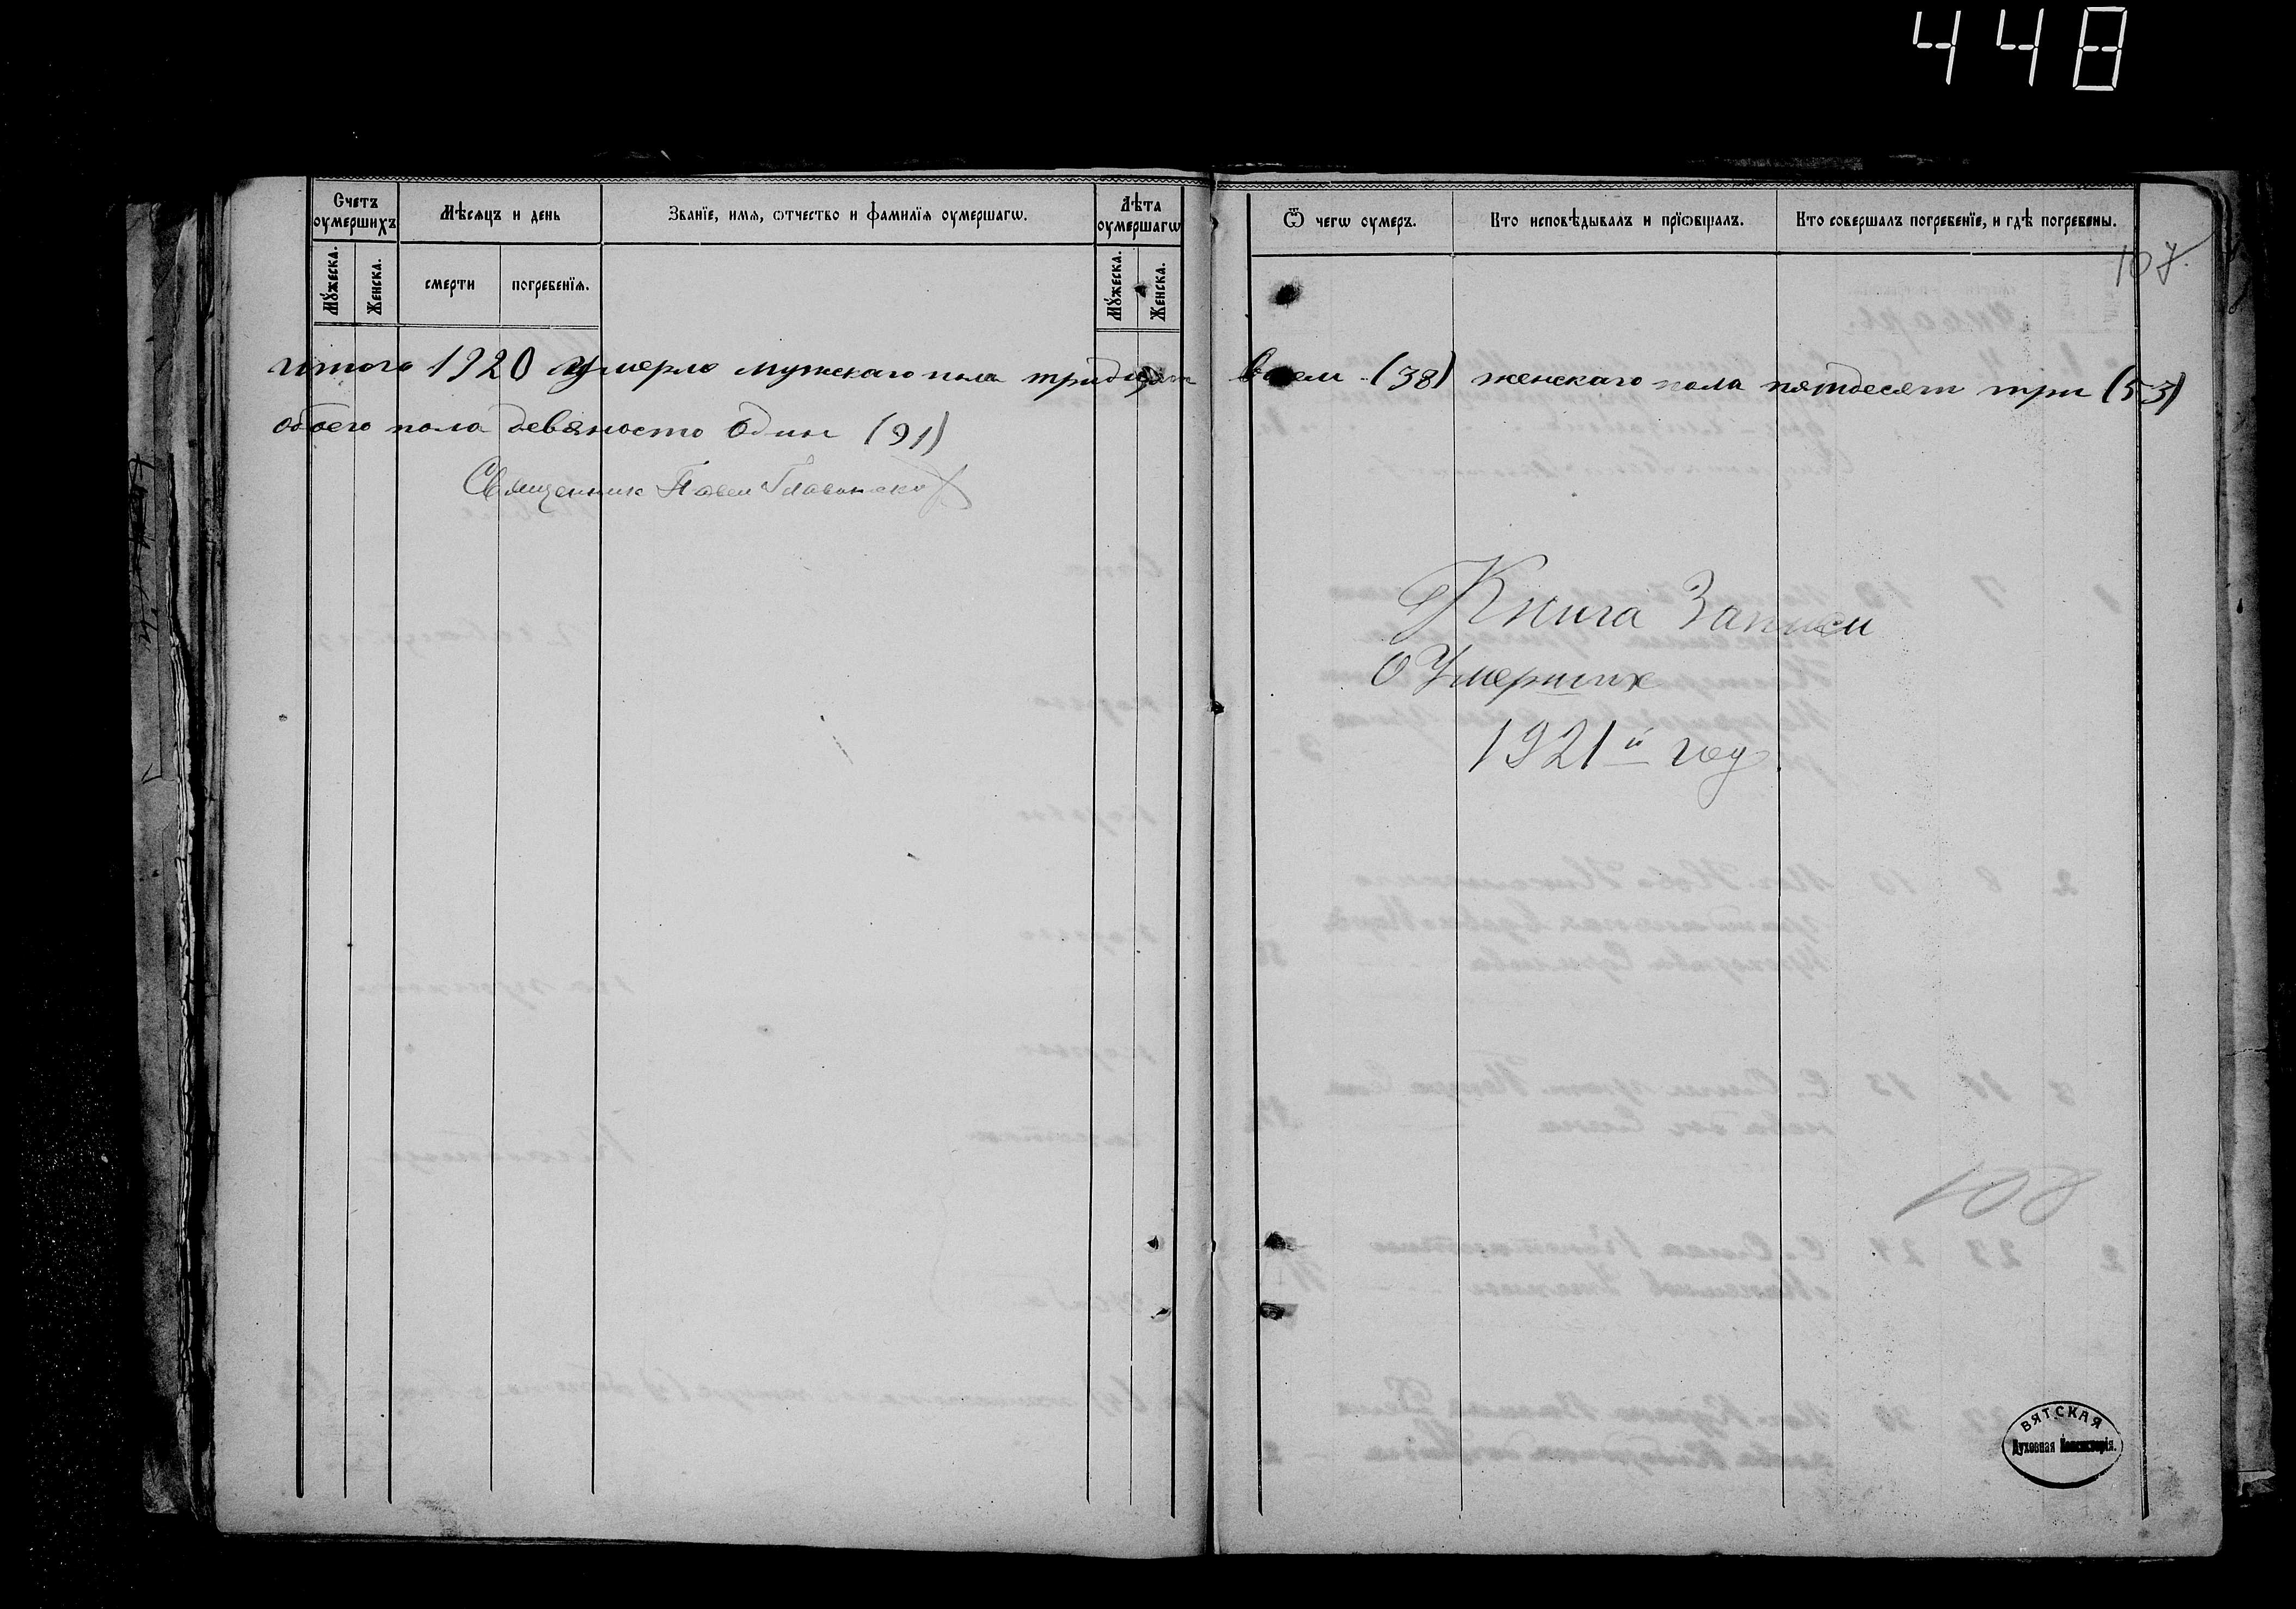 448
Счетъ оумершихъ
Мѣсяцъ и день
Званїе, имѧ, ѿтчество и фамилїѧ оумершагѡ.
Лѣта оумершагѡ
Мꙋжеска.
Женска.
смерти
погребенїѧ.
Мꙋжеска.
Женска.
Ѿ чегѡ оумеръ.
Кто исповѣдывалъ и прїѡбщалъ.
Кто совершалъ погребенїе, и гдѣ погребены.
107
итого 1920 умерло мужскаго пола тридцать восем (38) женскаго пола пятдесят три (53)
обоего пола девяносто один (91)
Священник Павел
Книга Записи
о Умерших
1921й год.
108
ВЯТСКАЯ
Духовная Консисторія.